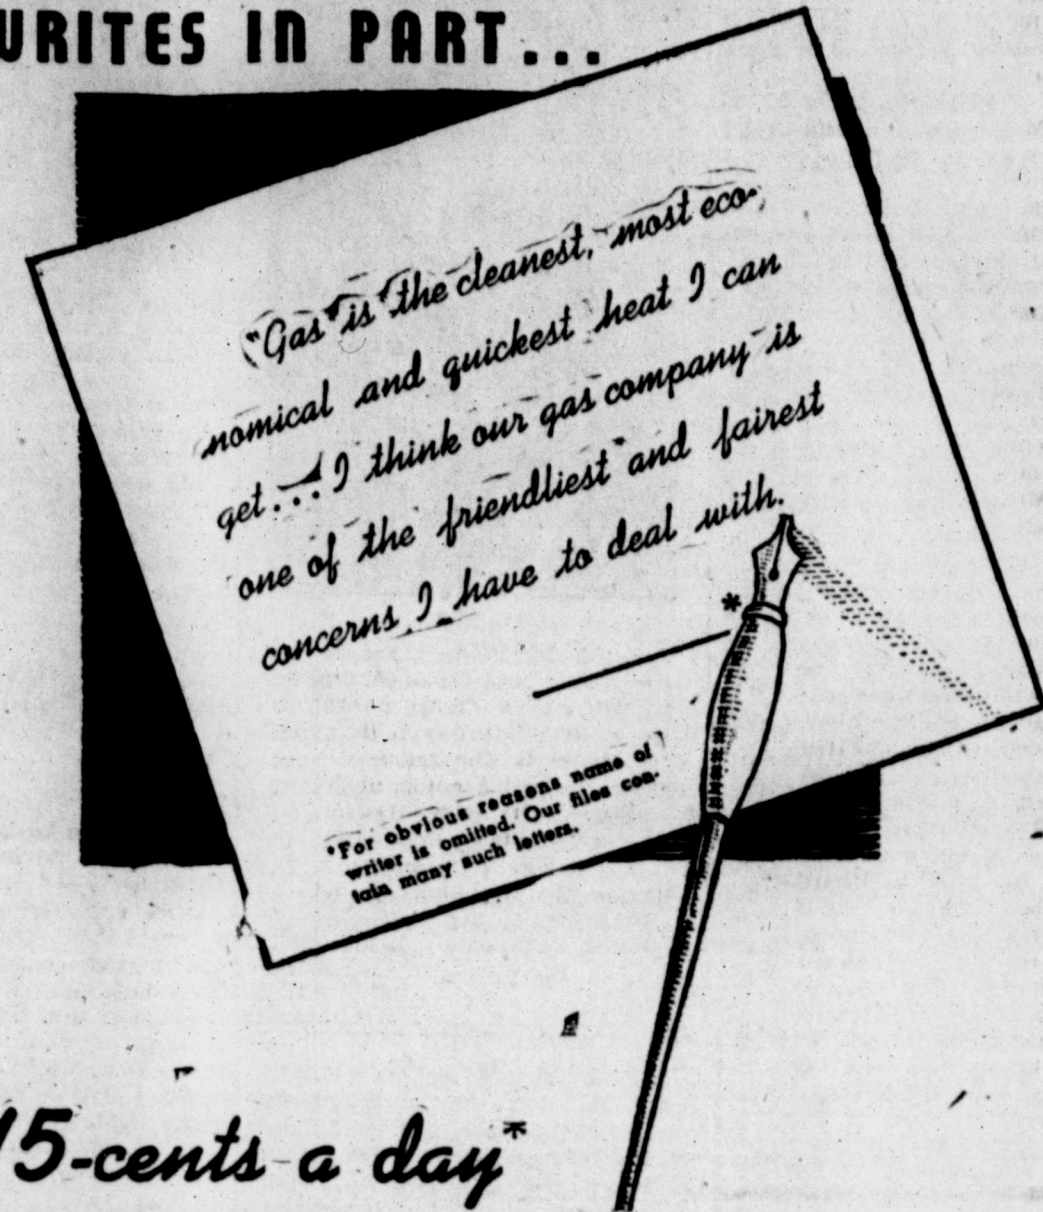 WRITES IN PART...
"Gas" is the cleanest, most eco-
nomical and quickest heat I can
get... I think our gas company is
one of the friendliest and fairest
concerns I have to deal with.
*
*For obvious reasons name of
writer is omitted. Our files con-
tain many such letters.
15-cents a day*